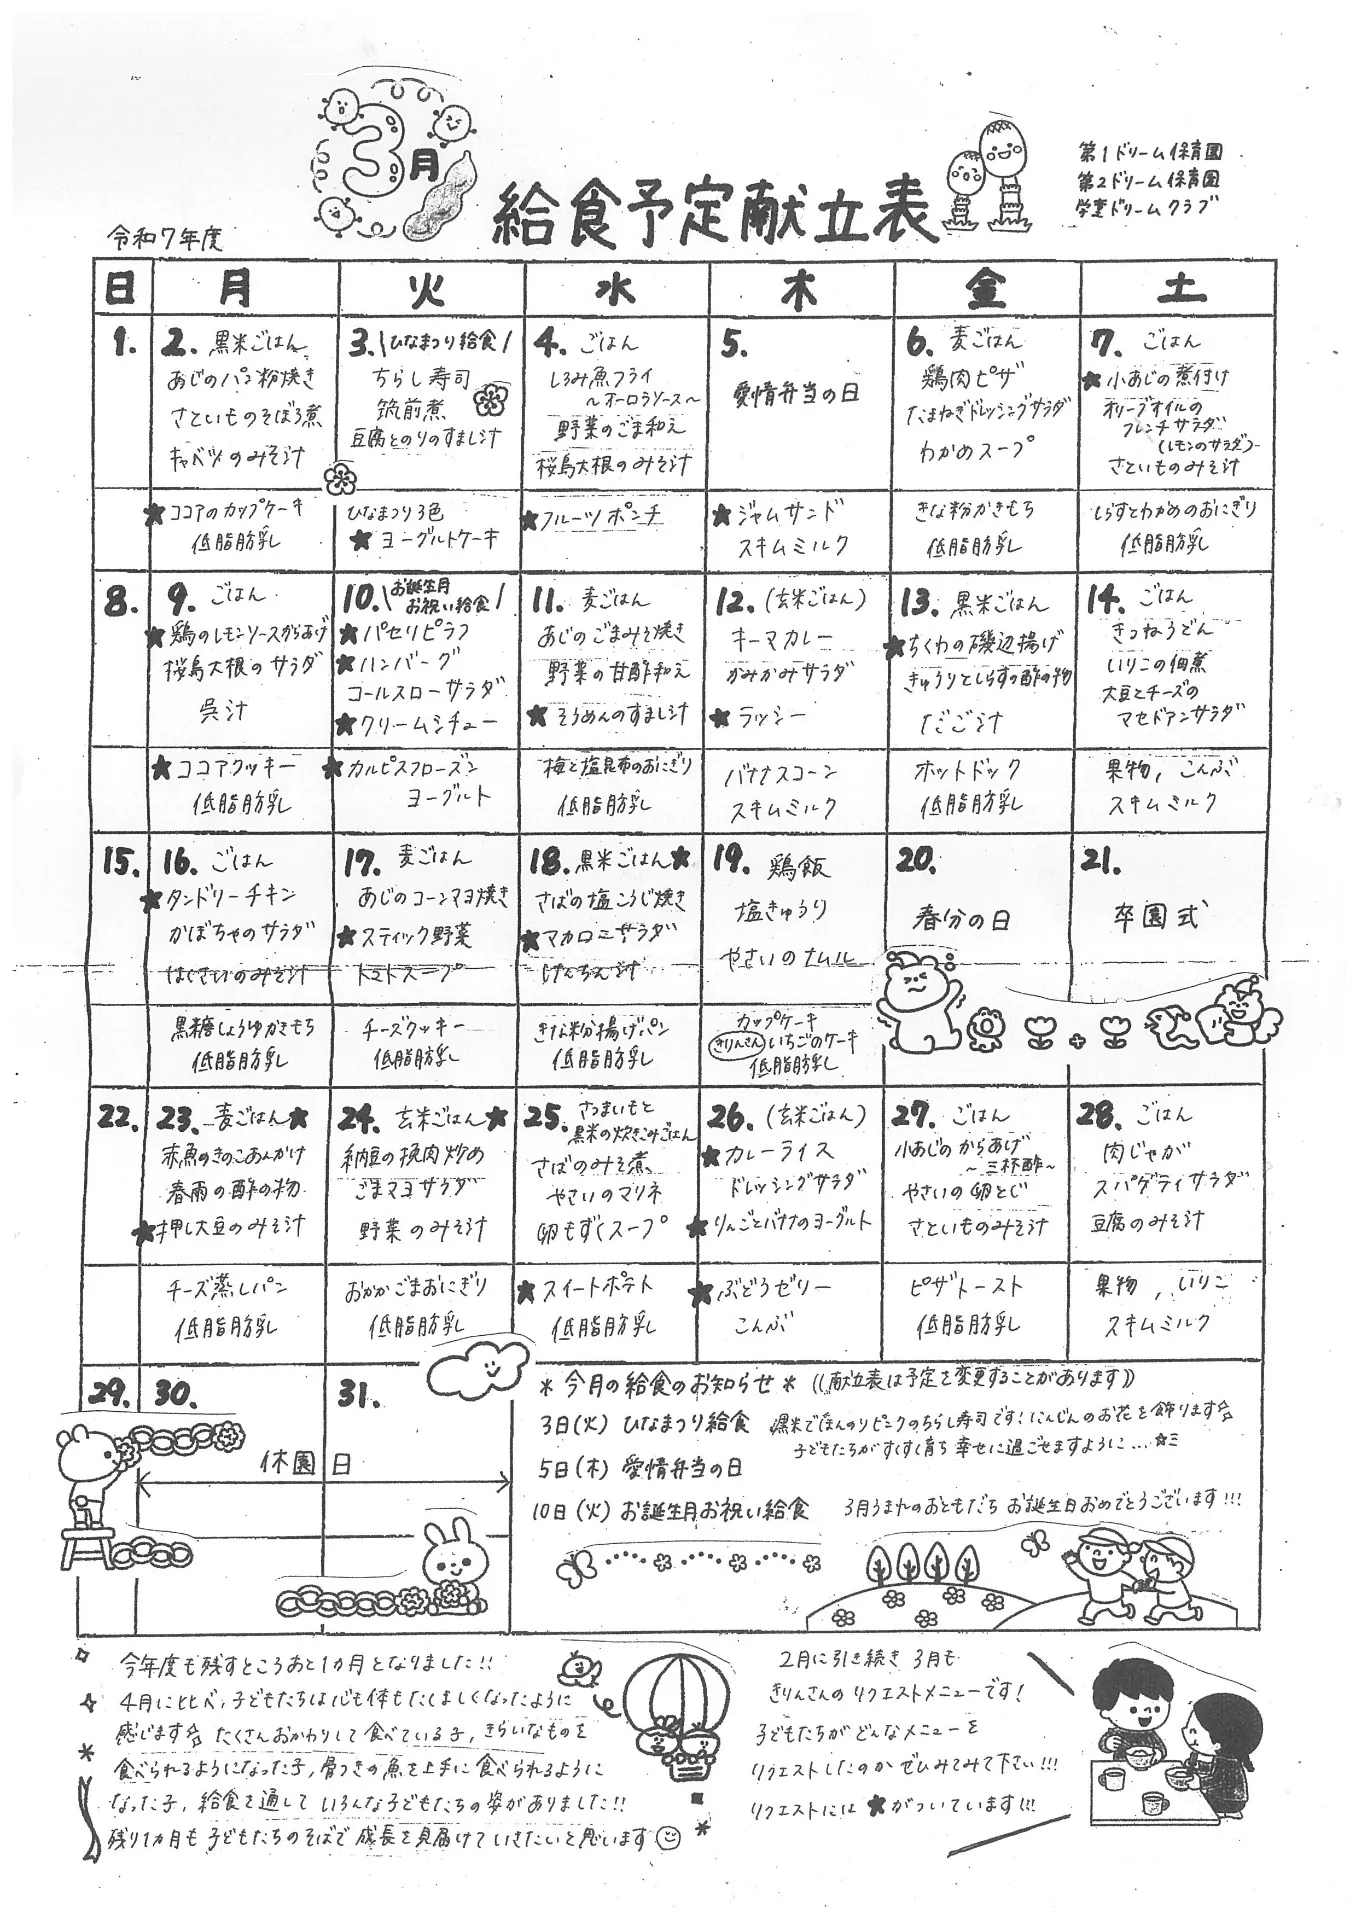 3月
給食予定献立表
第1ドリーム保育園
第2ドリーム保育園
学童ドリームクラブ
令和7年度
日 月 火 水 木 金 土
1.
2. 黒米ごはん
あじのパン粉焼き
さといものそぼろ煮
キャベツのみそ汁
★ココアのカップケーキ
低脂肪乳
3. \ひなまつり給食/
ちらし寿司
筑前煮
豆腐とのりのすまし汁
ひなまつり3色
★ヨーグルトケーキ
4. ごはん
しろみ魚フライ
～オーロラソース～
野菜のごま和え
桜島大根のみそ汁
★フルーツポンチ
5.
愛情弁当の日
★ジャムサンド
スキムミルク
6. 麦ごはん
鶏肉ピザ
たまねぎドレッシングサラダ
わかめスープ
きな粉かきもち
低脂肪乳
7. ごはん
★小あじの煮付け
オリーブオイルの
フレンチサラダ
(レモンのサラダ)
さといものみそ汁
しらすとわかめのおにぎり
低脂肪乳
8.
9. ごはん
★鶏のレモンソースからあげ
桜島大根のサラダ
呉汁
★ココアクッキー
低脂肪乳
10. \お誕生月
お祝い給食/
★パセリピラフ
★ハンバーグ
コールスローサラダ
★クリームシチュー
★カルピスフローズン
ヨーグルト
11. 麦ごはん
あじのごまみそ焼き
野菜の甘酢和え
★そうめんのすまし汁
梅と塩昆布のおにぎり
低脂肪乳
12. (玄米ごはん)
キーマカレー
かみかみサラダ
★ラッシー
バナナスコーン
スキムミルク
13. 黒米ごはん
★ちくわの磯辺揚げ
きゅうりとしらすの酢の物
だご汁
ホットドック
低脂肪乳
14. ごはん
きつねうどん
いりこの佃煮
大豆とチーズの
マセドアンサラダ
果物, こんぶ
スキムミルク
15.
16. ごはん
★タンドリーチキン
かぼちゃのサラダ
はくさいのみそ汁
黒糖しょうゆかきもち
低脂肪乳
17. 麦ごはん
あじのコーンマヨ焼き
★スティック野菜
トマトスープ
チーズクッキー
低脂肪乳
18. 黒米ごはん★
さばの塩こうじ焼き
★マカロニサラダ
けんちん汁
きな粉揚げパン
低脂肪乳
19. 鶏飯
塩きゅうり
やさいのナムル
カップケーキ
きりんさん いちごのケーキ
低脂肪乳
20.
春分の日
21.
卒園式
22.
23. 麦ごはん★
赤魚のきのこあんかけ
春雨の酢の物
★押し大豆のみそ汁
チーズ蒸しパン
低脂肪乳
24. 玄米ごはん★
納豆の挽肉炒め
ごまマヨサラダ
野菜のみそ汁
おかかごまおにぎり
低脂肪乳
25. さつまいもと
黒米の炊きこみごはん
さばのみそ煮
やさいのマリネ
卵もずくスープ
★スイートポテト
低脂肪乳
26. (玄米ごはん)
★カレーライス
ドレッシングサラダ
★りんごとバナナのヨーグルト
★ぶどうゼリー
こんぶ
27. ごはん
小あじのからあげ
～三杯酢～
やさいの卵とじ
さといものみそ汁
ピザトースト
低脂肪乳
28. ごはん
肉じゃが
スパゲティサラダ
豆腐のみそ汁
果物, いりこ
スキムミルク
29. 30. 31.
休園日
＊今月の給食のお知らせ＊ ((献立表は予定を変更することがあります))
3日(火) ひなまつり給食 黒米でほんのりピンクのちらし寿司です!にんじんのお花を飾ります☆
子どもたちがすくすく育ち 幸せに過ごせますように...☆ミ
5日(木) 愛情弁当の日
10日(火) お誕生月お祝い給食 3月うまれのおともだち お誕生日おめでとうございます!!!
今年度も残すところあと1か月となりました!!
4月に比べ, 子どもたちは心も体もたくましくなったように
感じます☆ たくさんおかわりして食べている子, きらいなものを
食べられるようになった子, 骨つきの魚を上手に食べられるように
なった子, 給食を通して いろんな子どもたちの姿がありました!!
残り1か月も 子どもたちのそばで 成長を見届けていきたいと思います
2月に引き続き 3月も
きりんさんのリクエストメニューです!
子どもたちがどんなメニューを
リクエストしたのか ぜひみてみて下さい!!!
リクエストには★がついています!!!